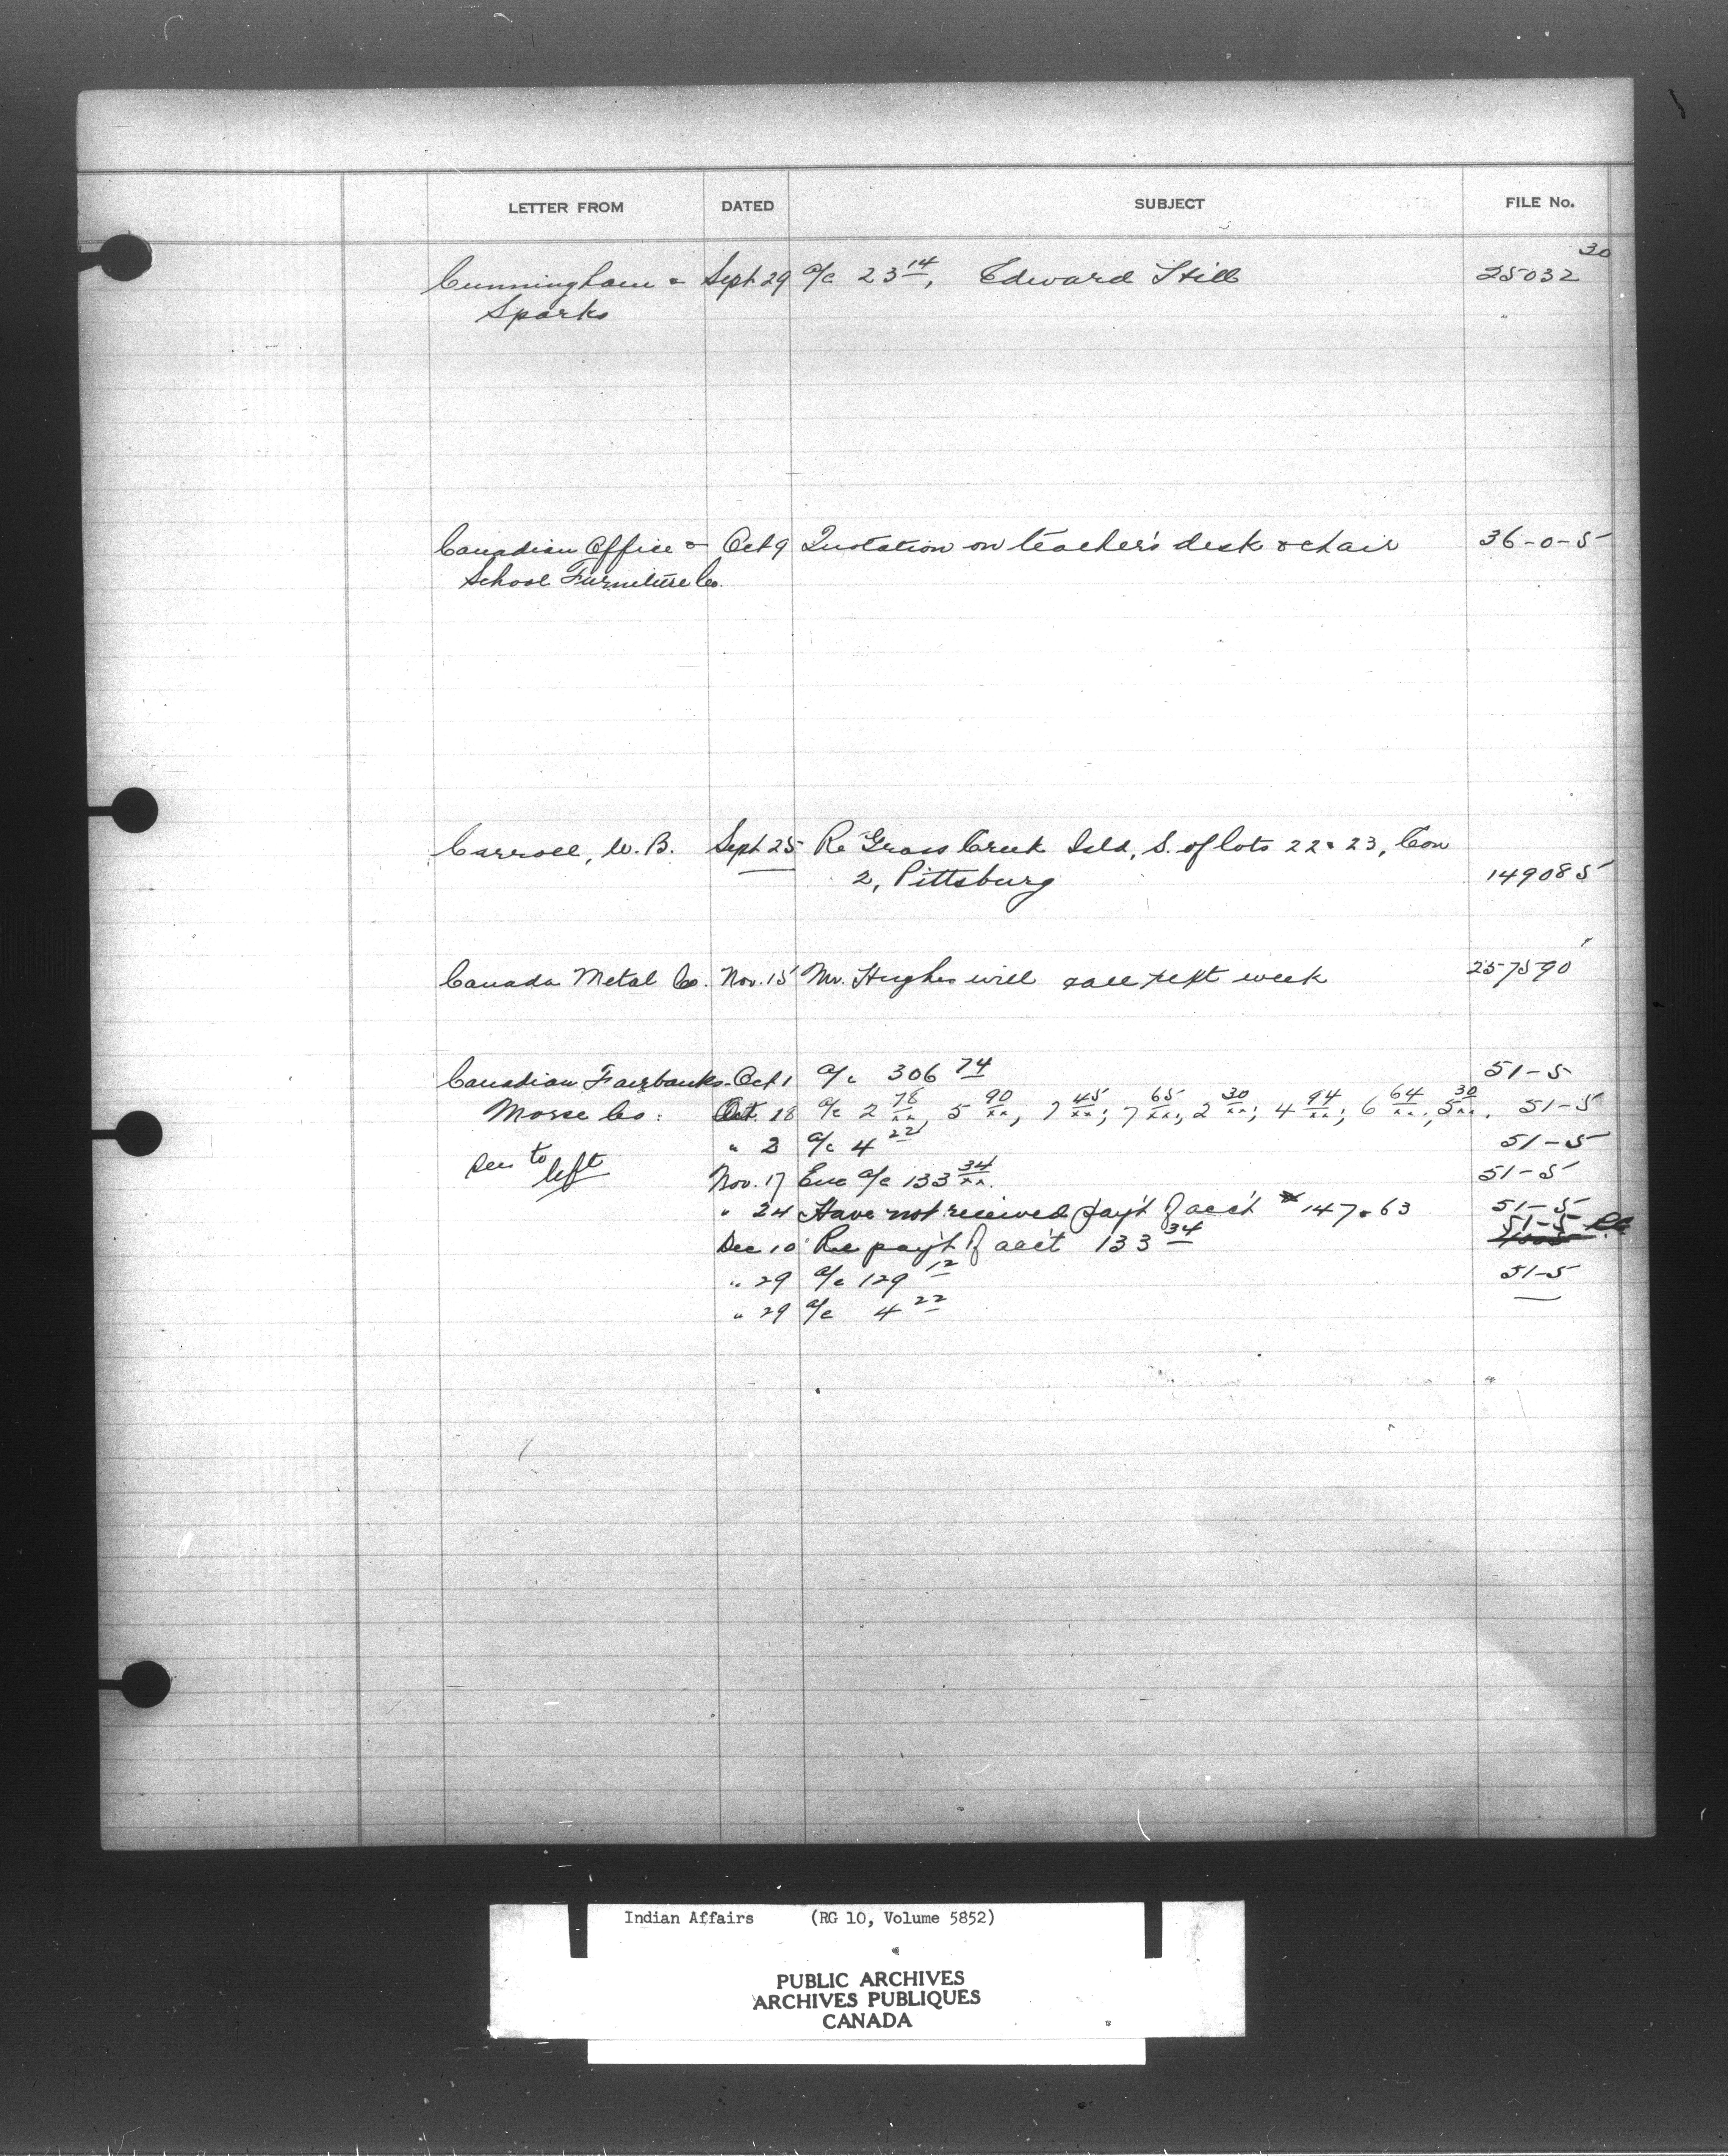 LETTER FROM DATED SUBJECT FILE No.
30
Cunningham & Sept 29 a/c 23 14, Edward Still 25032
Sparks
Canadian Office & Oct 9 Quotation on teacher's desk & chair 36-0-5
School Furniture Co.
Carroll, W.B. Sept 25 Re Grass Creek Isld, S. of lots 22 & 23, Con
2, Pittsburg 149085
Canada Metal Co. Nov. 15 Mr. Hughes will call next week 257590
Canadian Fairbanks- Oct 1 a/c 306 74 51-5
Morse Co: Oct. 18 a/c 2 78/xx, 5 90/xx, 7 45/xx; 7 65/xx; 2 30/xx; 4 94/xx; 6 64/xx, 5 30/xx. 51-5
" 2 a/c 4 22 51-5
See to left Nov. 17 Enc a/c 133 34/xx. 51-5
" 24 Have not received pay't of acc't 147.63 51-5
Dec 10 Re pay't of acc't 133 34 51-5
" 29 a/c 129 12 51-5
" 29 a/c 4 22
Indian Affairs (RG 10, Volume 5852)
PUBLIC ARCHIVES
ARCHIVES PUBLIQUES
CANADA